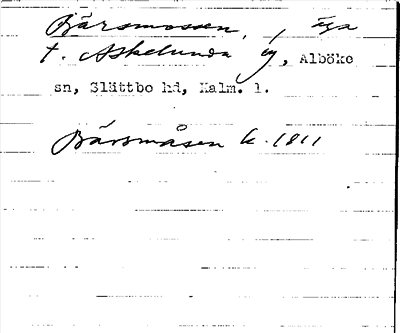 Bärsmossen, , äga
t. Askelunda by, Alböke
sn, Slättbo hd, Kalm. l.
Bärsmåsen k. 1811